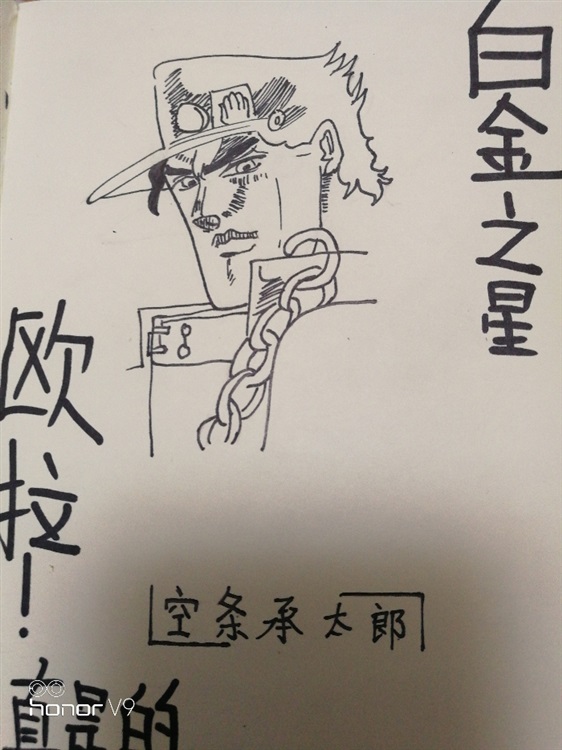 白金之星
欧拉！
空条承太郎
真是的
honor V9